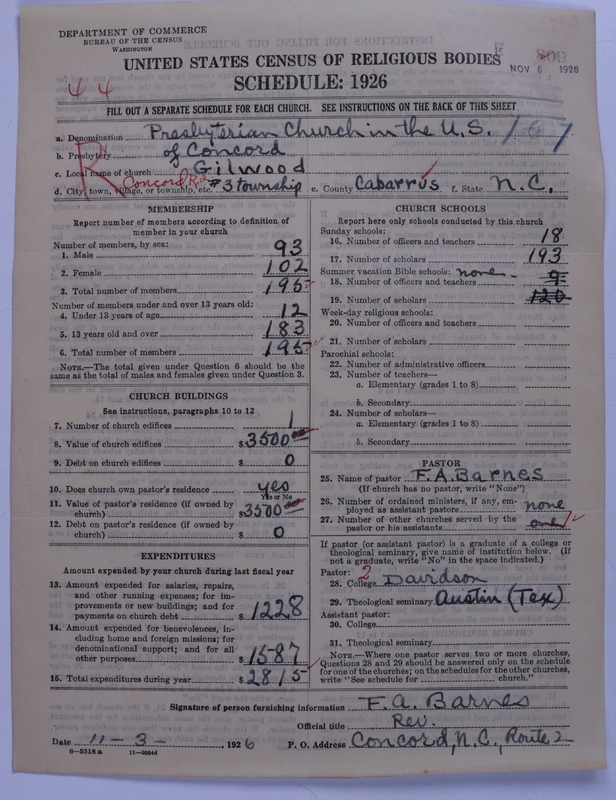 DEPARTMENT OF COMMERCE
BUREAU OF THE CENSUS
WASHINGTON
UNITED STATES CENSUS OF RELIGIOUS BODIES
NOV 6 1926
SCHEDULE: 1926
4 4
FILL OUT A SEPARATE SCHEDULE FOR EACH CHURCH. SEE INSTRUCTIONS ON THE BACK OF THIS SHEET
a. Denomination Presbyterian Church in the U.S.
b. Presbytery of Concord
c. Local name of church Gilwood
R
d. City, town, village, or township, etc. Concord R2 #3 township e. County Cabarrus f. State N.C.
MEMBERSHIP
Report number of members according to definition of
member in your church
Number of members, by sex:
1. Male 93
2. Female 102
3. Total number of members 195
Number of members under and over 13 years old:
4. Under 13 years of age 12
5. 13 years old and over 183
6. Total number of members 195
NOTE.—The total given under Question 6 should be
same as the total of males and females given under Question 3.
CHURCH BUILDINGS
See instructions, paragraphs 10 to 12
7. Number of church edifices 1
8. Value of church edifices $ 3500 00
9. Debt on church edifices $ 0
10. Does church own pastor's residence yes
Yes or No
11. Value of pastor's residence (if owned by
church) $ 3500 00
12. Debt on pastor's residence (if owned by
church) $ 0
EXPENDITURES
Amount expended by your church during last fiscal year
13. Amount expended for salaries, repairs,
and other running expenses; for im-
provements or new buildings; and for
payments on church debt $ 1228
14. Amount expended for benevolences, in-
cluding home and foreign missions; for
denominational support; and for all
other purposes $ 1587
15. Total expenditures during year $ 2815
CHURCH SCHOOLS
Report here only schools conducted by this church
Sunday schools:
16. Number of officers and teachers 18
17. Number of scholars 193
Summer vacation Bible schools: none
18. Number of officers and teachers 9
19. Number of scholars 120
Week-day religious schools:
20. Number of officers and teachers
21. Number of scholars
Parochial schools:
22. Number of administrative officers
23. Number of teachers—
a. Elementary (grades 1 to 8)
b. Secondary
24. Number of scholars—
a. Elementary (grades 1 to 8)
b. Secondary
PASTOR
25. Name of pastor F. A. Barnes
(If church has no pastor, write "None")
26. Number of ordained ministers, if any, em-
ployed as assistant pastors none
27. Number of other churches served by the
pastor or his assistants one 1
If pastor (or assistant pastor) is a graduate of a college or
theological seminary, give name of institution below. (If
not a graduate, write "No" in the space indicated.)
Pastor: 2
28. College Davidson
29. Theological seminary Austin (Tex)
Assistant pastor:
30. College
31. Theological seminary
NOTE.—Where one pastor serves two or more churches,
Questions 28 and 29 should be answered only on the schedule
for one of the churches; on the schedules for the other churches,
write "See schedule for church."
Signature of person furnishing information F. A. Barnes
Official title Rev.
Date 11-3-, 1926 P. O. Address Concord, N.C., Route 2
8-5518 a